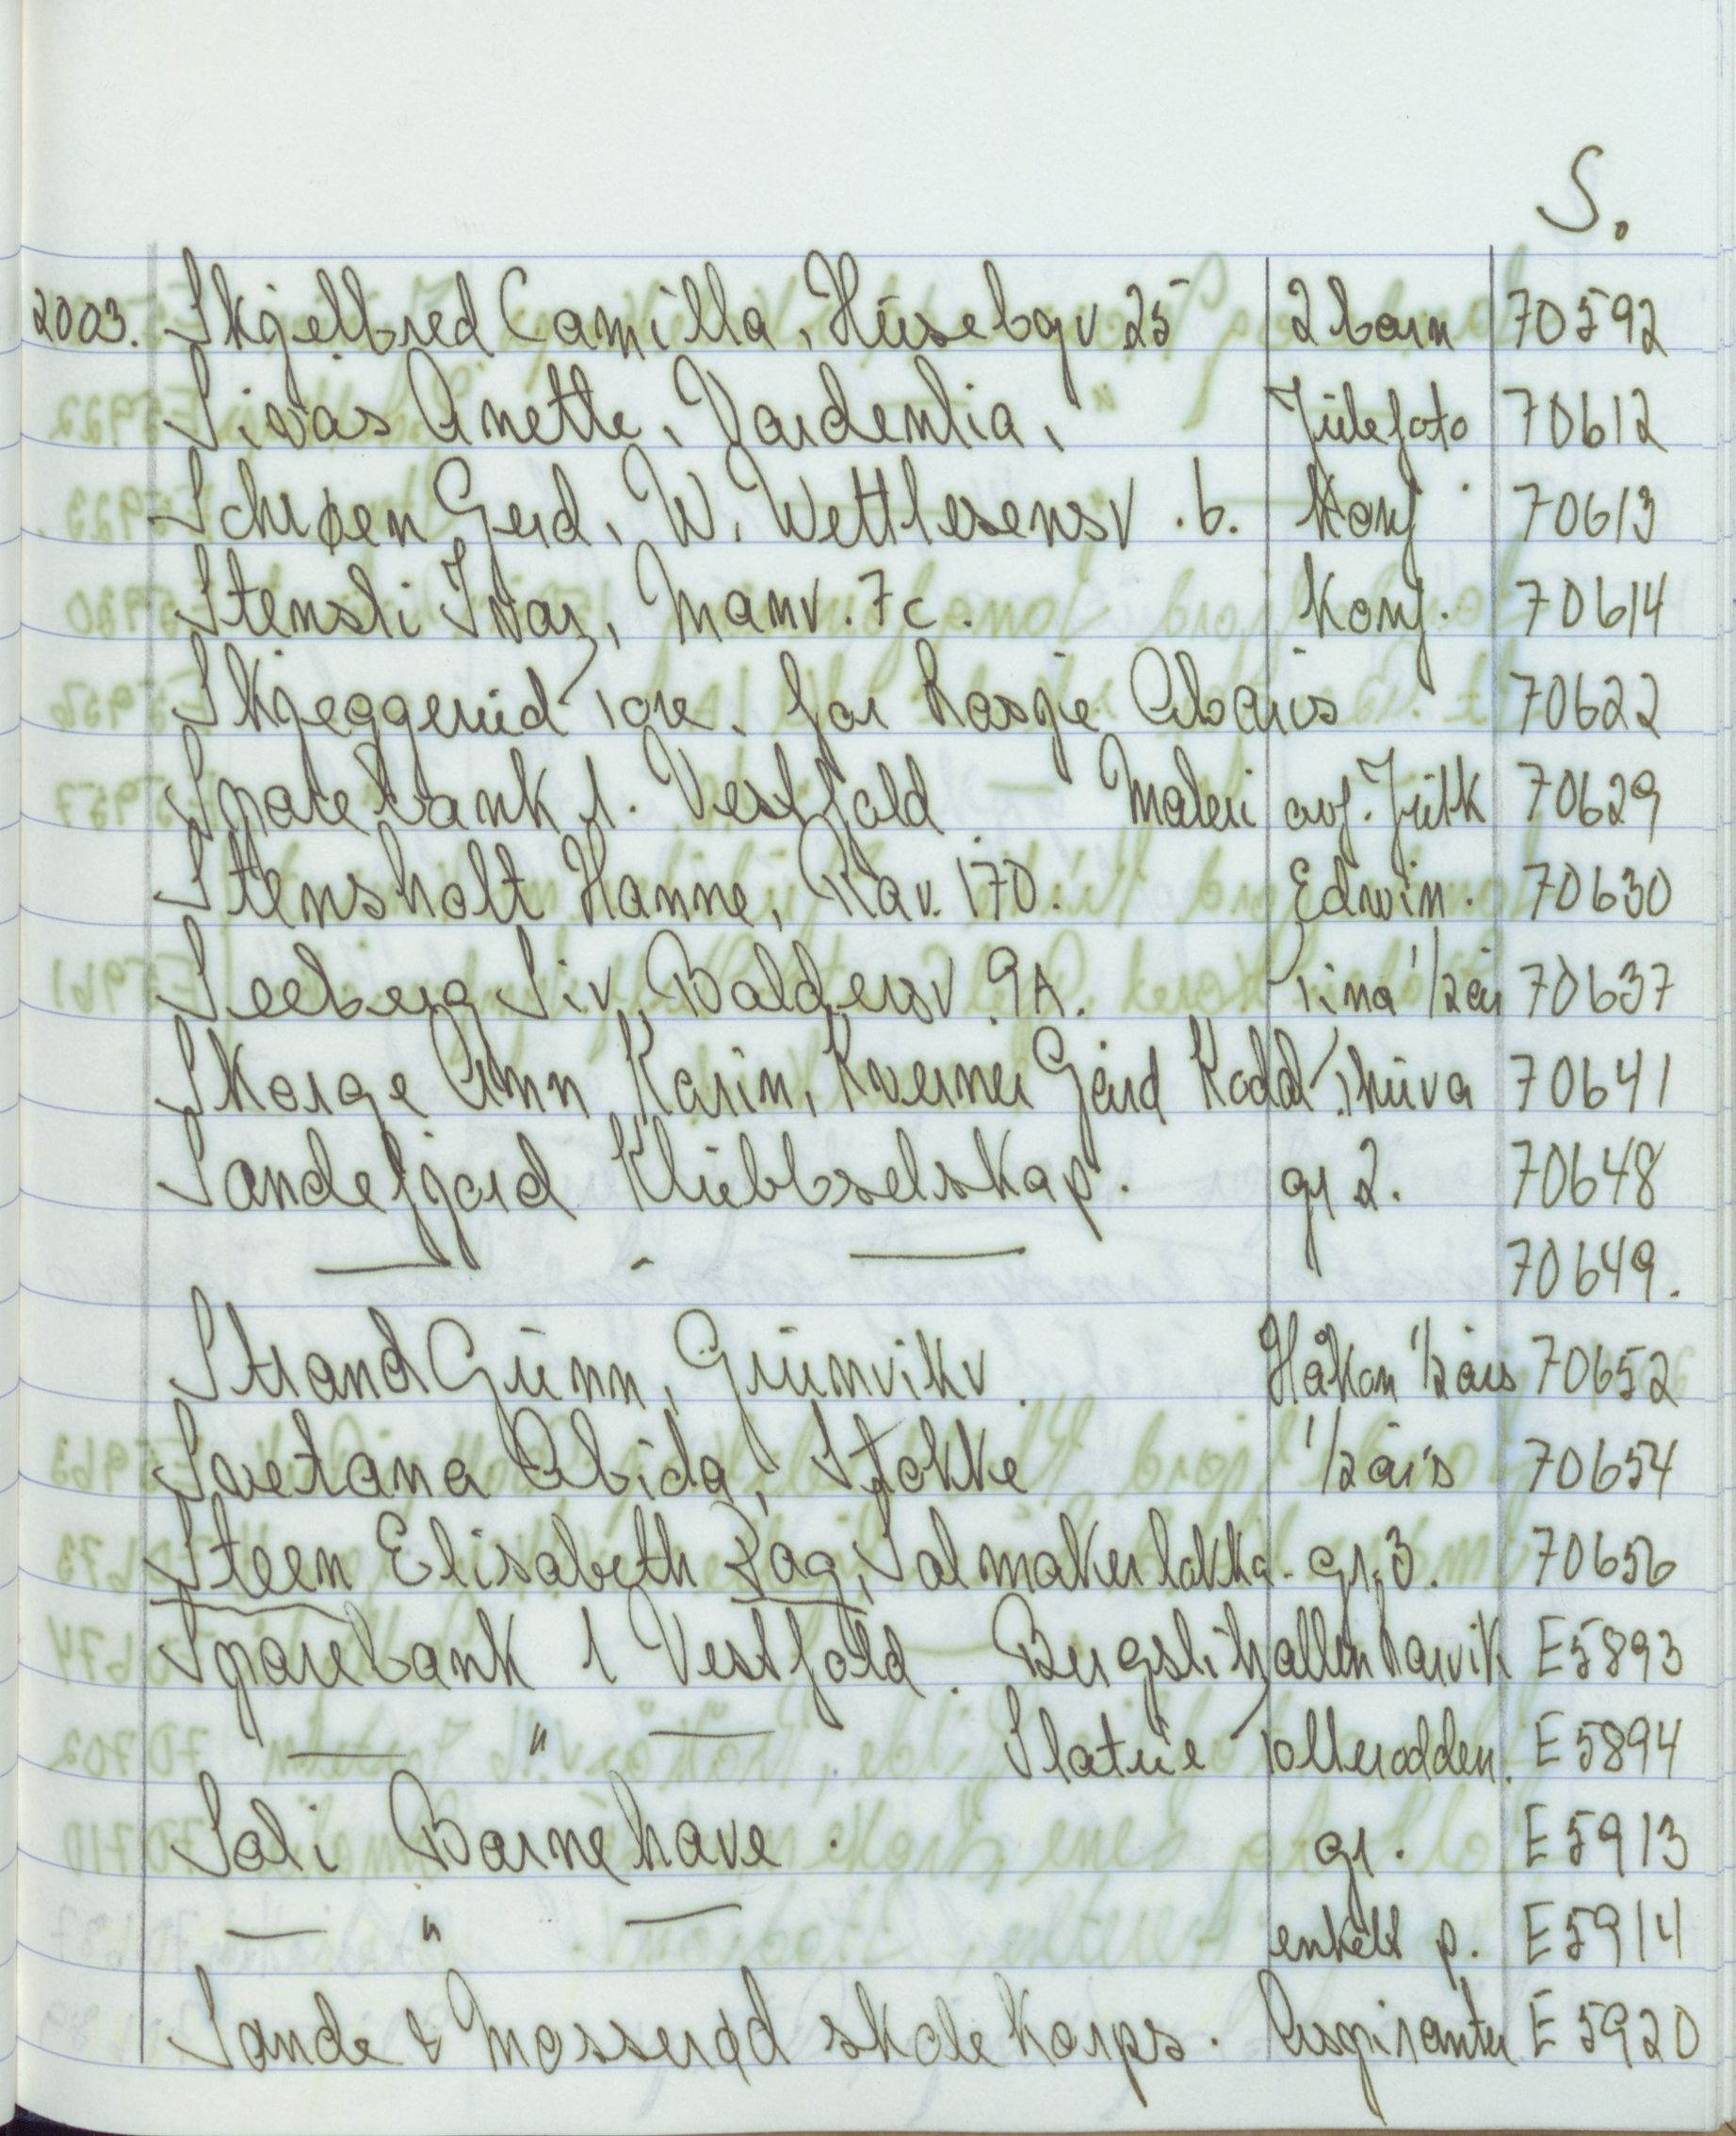 S.
2003. Skjelbred Camilla, Husebyv 25 2 barn 70592
Sivas Anette, Vardenlia, Julefoto 70612
Schrøen Gerd, W. Wettlesensv .6. Konf 70613
Stensli Ivar, Manv. 7c. Konf. 70614
Skjeggerud Tore. for Kasje Abaris 70622
Sparebank 1. Vestfold Maleri avf. Julk 70629
Stensholt Hanne, Råv. 170. Edwin. 70630
Seeberg Siv, Baldersv 9A. Tina 1/2 år 70637
Skorge Ann Karin, Kverner Gård Kodal. Thuva 70641
Sandefjord Klubbselskap. gr 2. 70648
— " — 70649.
Strand Gunn, Grumvikv Håkon 1/2 års 70652
Svetana Abida, Stokke 1/2 års 70654
Steen Elisabeth & Dag, Salmakerløkka. gr. 3. 70656
Sparebank 1 Vestfold. Bergslihallen Larvik E5893
— " — Statue Tollerodden. E5894
Soli Barnehave. gr. E5913
— " — enkelt p. E5914
Sande & Mosserød skolekorps. Aspiranter E5920